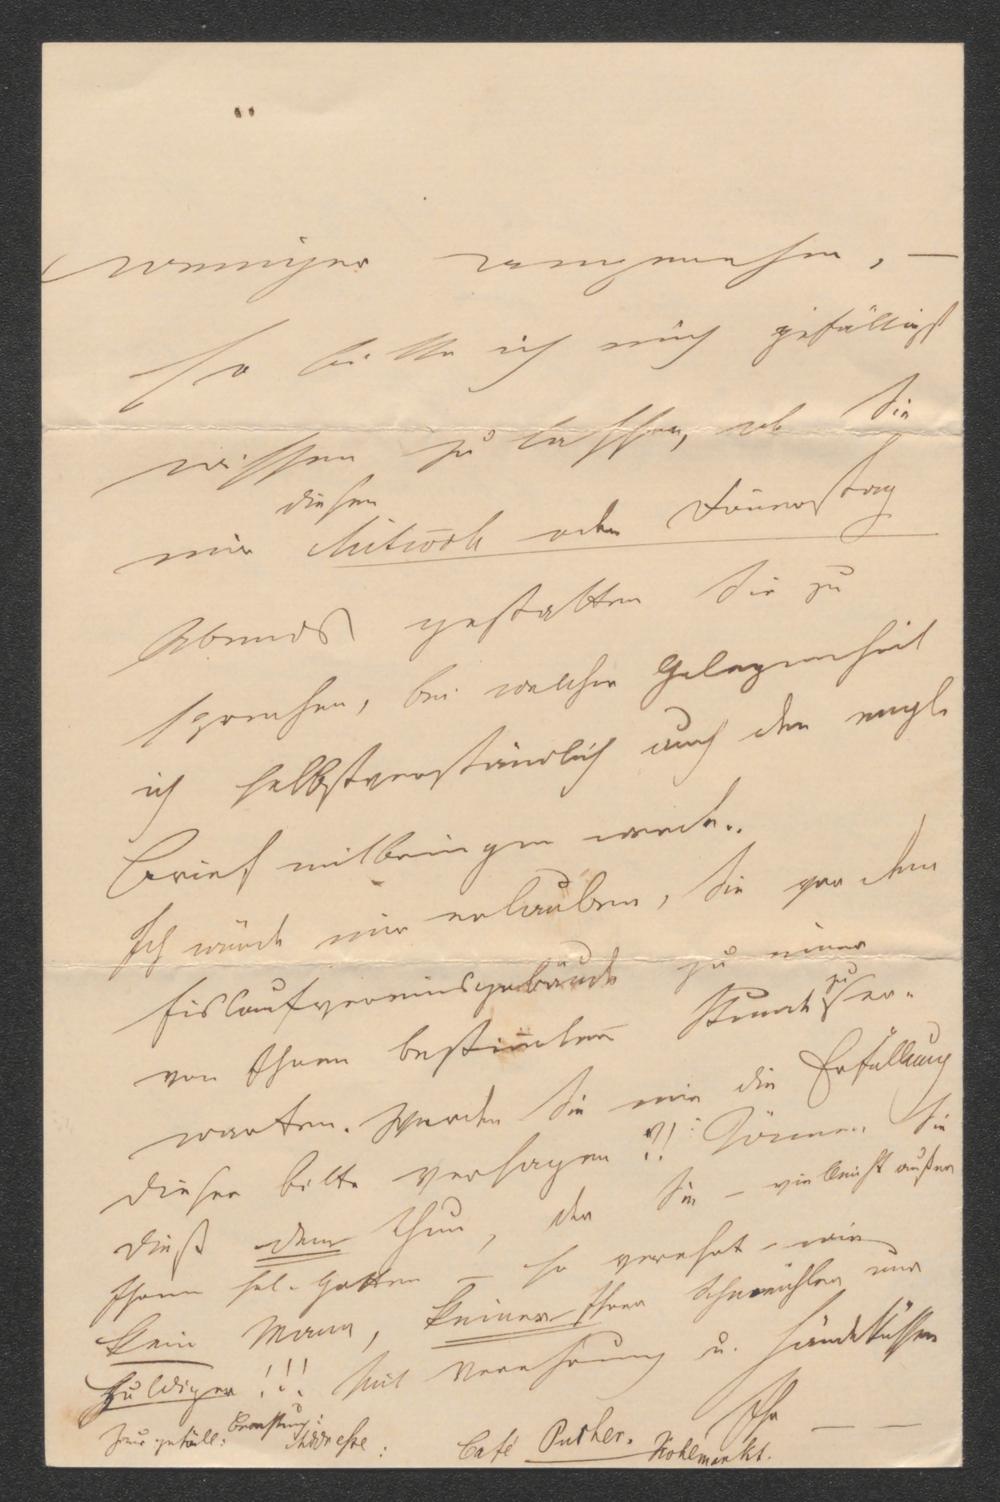 weniger angenehm, –
so bitte ich mich gefälligst
wissen zu lassen, ob Sie
diesen
mir Mitwoch oder Donnerstag
Abends gestatten Sie zu
sprechen, bei welcher Gelegenheit
ich selbstverständlich auch den engl.
Brief mitbringen werde.
Ich würde mir erlauben, Sie vor dem
Eislaufvereinsgebäude zu einer
von Ihnen bestimmten Stunde zu er-
warten. Werden Sie mir die Erfüllung
dieser Bitte versagen?! Können Sie
dieß dem thun, der Sie – vielleicht außer
Ihrem sel. Gatten – so verehrt – wie
kein Mann, keiner Ihrer Schmeichler und
Huldiger!!! Mit Verehrung u. Handküssen
Ihr — —
Zur gefäll. Adresse: Café Pucher. Kohlmarkt.